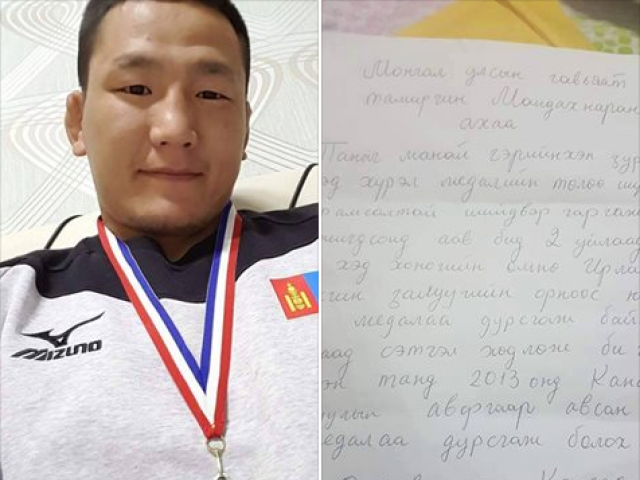 MIZUNO
Монгол улсын гавьяат
тамирчин Мандахнаран
ахаа
Таныг манай гэрийнхэн зур
эд хүрэл медалийн төлөө ши
рамсалтай шийдвэр гаргахад
чигдсэнд аав бид 2 уйлаад
хэд хоногийн өмнө Ирла
гин залуугийн орноос
медалаа дурсгаж бай
аад сэтгэл хөдлөж би
эн танд 2013 онд Кана
улын аваргаар авсан
едалаа дурсгаж болох